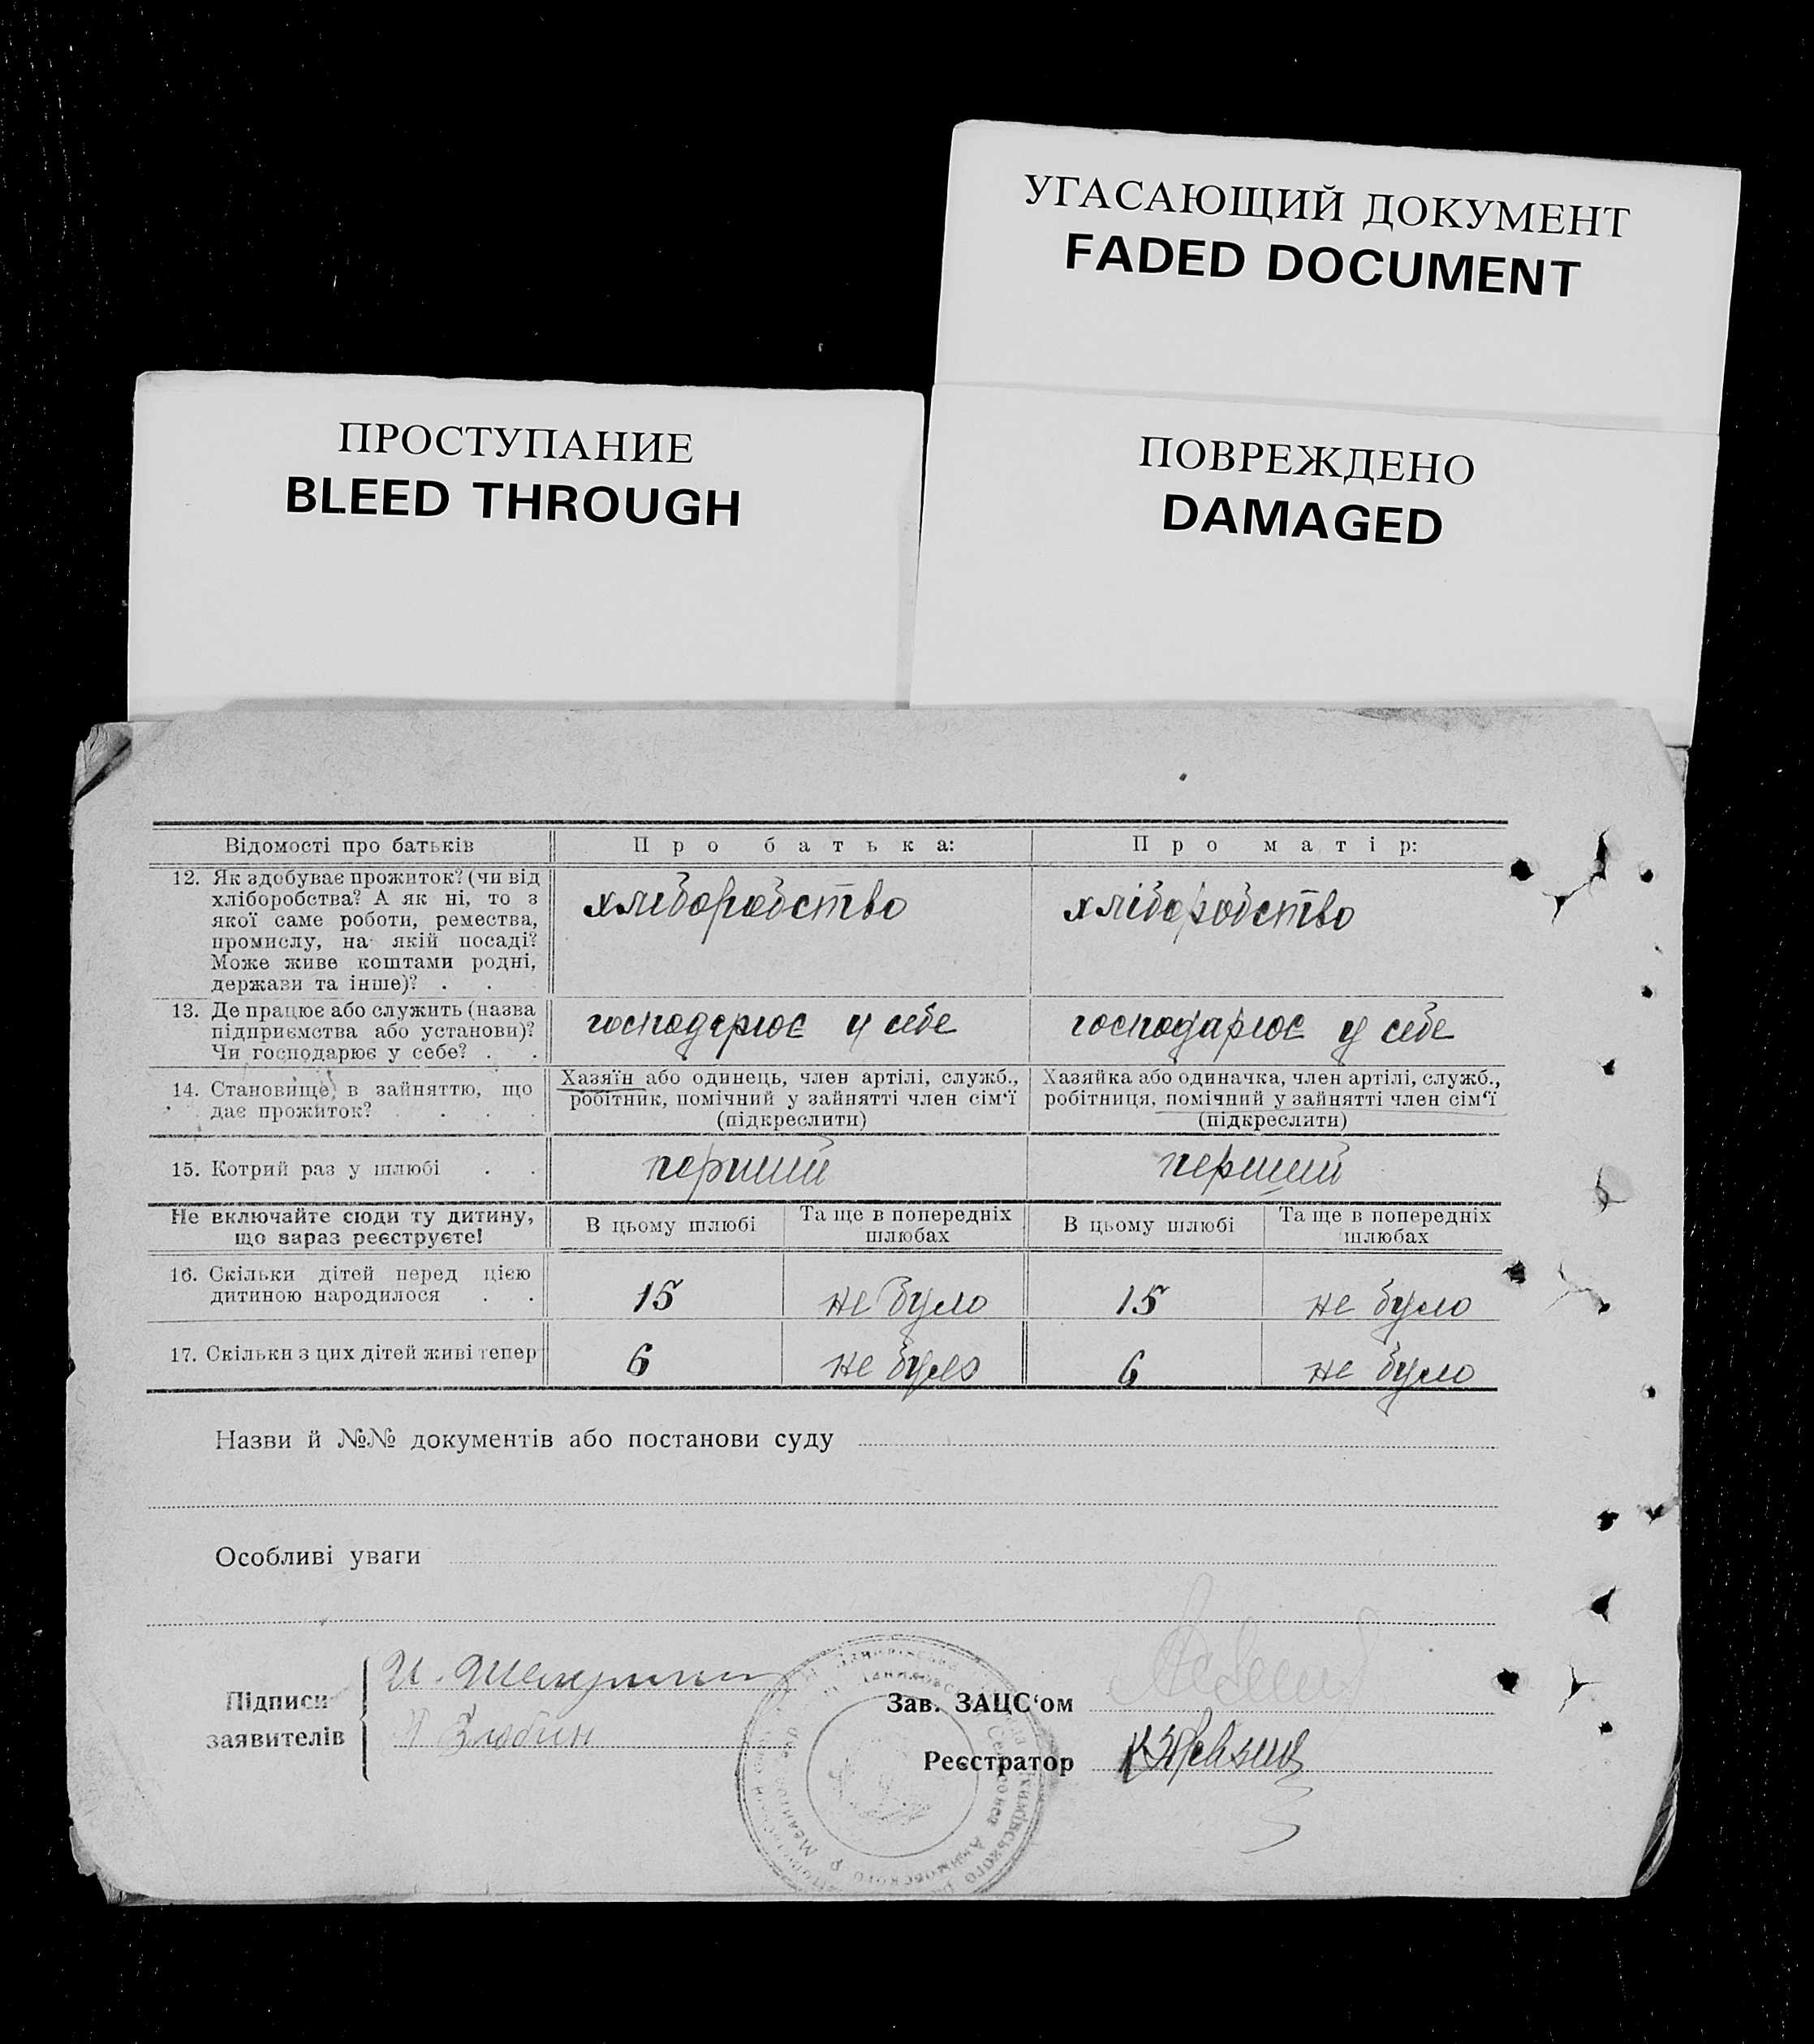 УГАСАЮЩИЙ ДОКУМЕНТ
FADED DOCUMENT
ПРОСТУПАНИЕ
BLEED THROUGH
ПОВРЕЖДЕНО
DAMAGED
Відомості про батьків
Про батька:
Про матір:
12. Як здобуває прожиток? (чи від
хліборобства? А як ні, то з
якої саме роботи, ремества,
промислу, на якій посаді?
Може живе коштами родні,
держави та інше)? . .
хліборобство
хліборобство
13. Де працює або служить (назва
підприємства або установи)?
Чи господарює у себе? . .
господарює у себе
господарює у себе
14. Становище в зайняттю, що
дає прожиток? . . . .
Хазяїн або одинець, член артілі, служб.,
робітник, помічний у зайнятті член сім‘ї
(підкреслити)
Хазяйка або одиначка, член артілі, служб.,
робітниця, помічний у зайнятті член сім‘ї
(підкреслити)
15. Котрий раз у шлюбі . .
перший
перший
Не включайте сюди ту дитину,
що зараз реєструєте!
В цьому шлюбі
Та ще в попередніх
шлюбах
В цьому шлюбі
Та ще в попередніх
шлюбах
16. Скільки дітей перед цією
дитиною народилося . .
15
не було
15
не було
17. Скільки з цих дітей живі тепер
6
не було
6
не було
Назви й №№ документів або постанови суду
Особливі уваги
Підписи
заявителів
Зав. ЗАЦС‘ом
Реєстратор